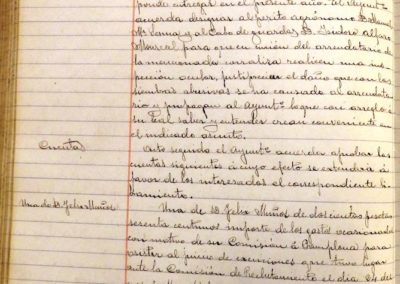 ponde entregar en el presente año. El Ayuntº
acuerda designar al perito agrónomo D.
y al Cabo de guardas D. Isidoro Alfaro
para que en unión del arrendatario de
la mencionada corraliza realicen una ins-
pección ocular, justiprecien el daño que con las
siembras abusivas se ha causado al arrendata-
rio y propongan al Ayuntº lo que con arreglo á
su leal saber y entender crean conveniente en
el indicado asunto.
Cuentas
Acto seguido el Ayuntº acuerda aprobar las
cuentas siguientes á cuyo efecto se extenderá á
favor de los interesados el correspondiente li-
bramiento.
Una de D. Felix Muñoz
Una de D. Felix Muñoz de dos cientas pesetas
sesenta centimos importe de los gastos ocasionados
con motivo de su Comisión á Pamplona para
asistir al juicio de exenciones que tuvo lugar
ante la Comisión de Reclutamiento el dia 24 del